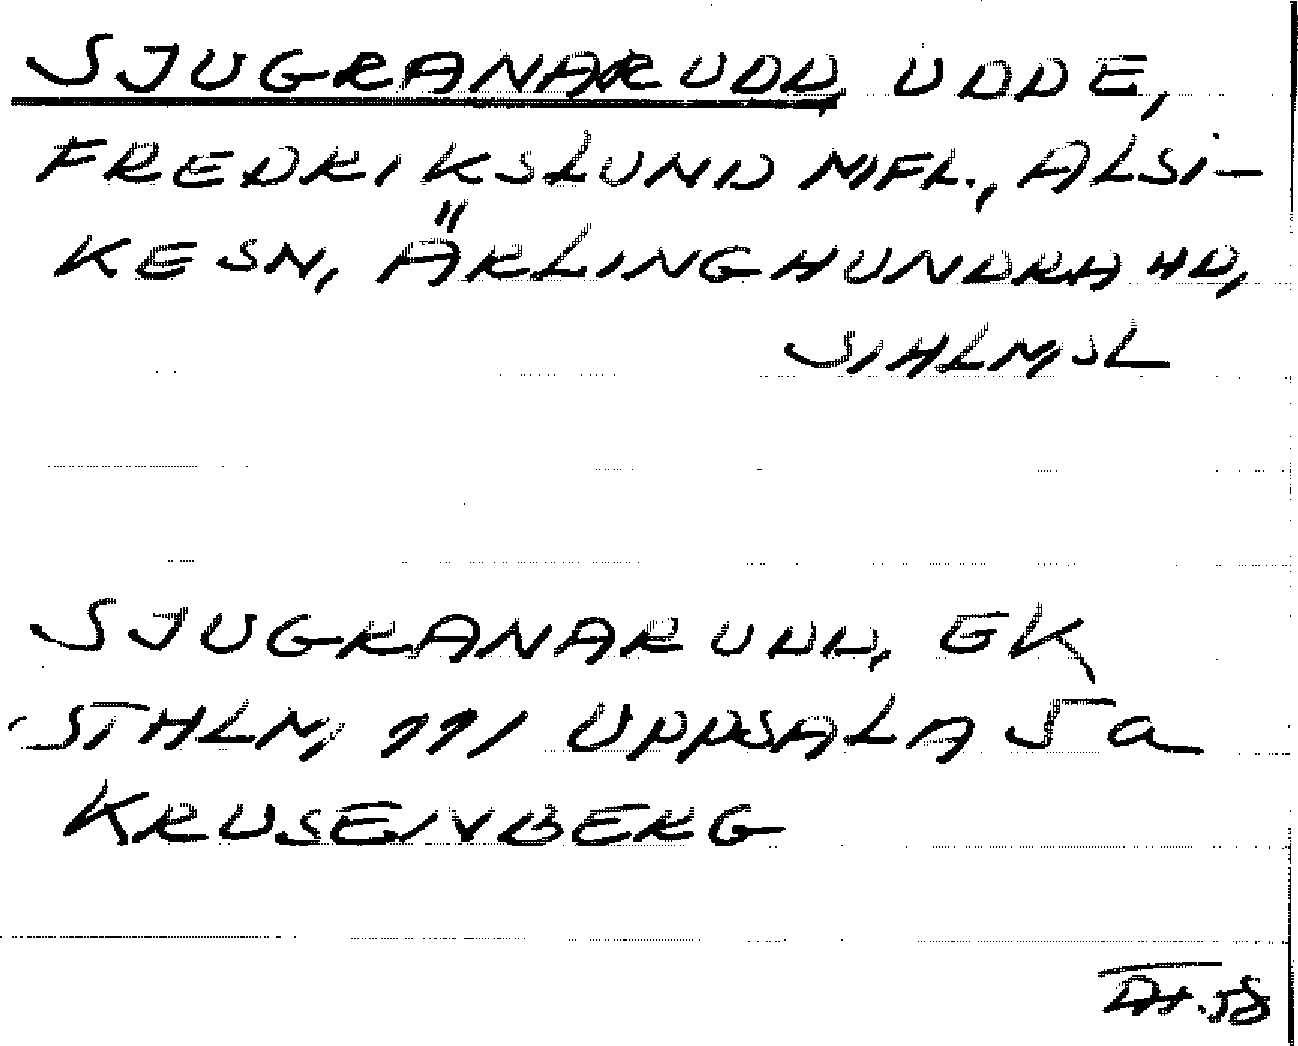 SJUGRANARUDD, UDDE,
FREDRIKSLUND MFL., ALSI-
KE SN, ÄRLINGHUNDRA HD,
STHLMS L
SJUGRANARUDD, EK
STHLM, 111 UPPSALA 5a
KRUSENBERG